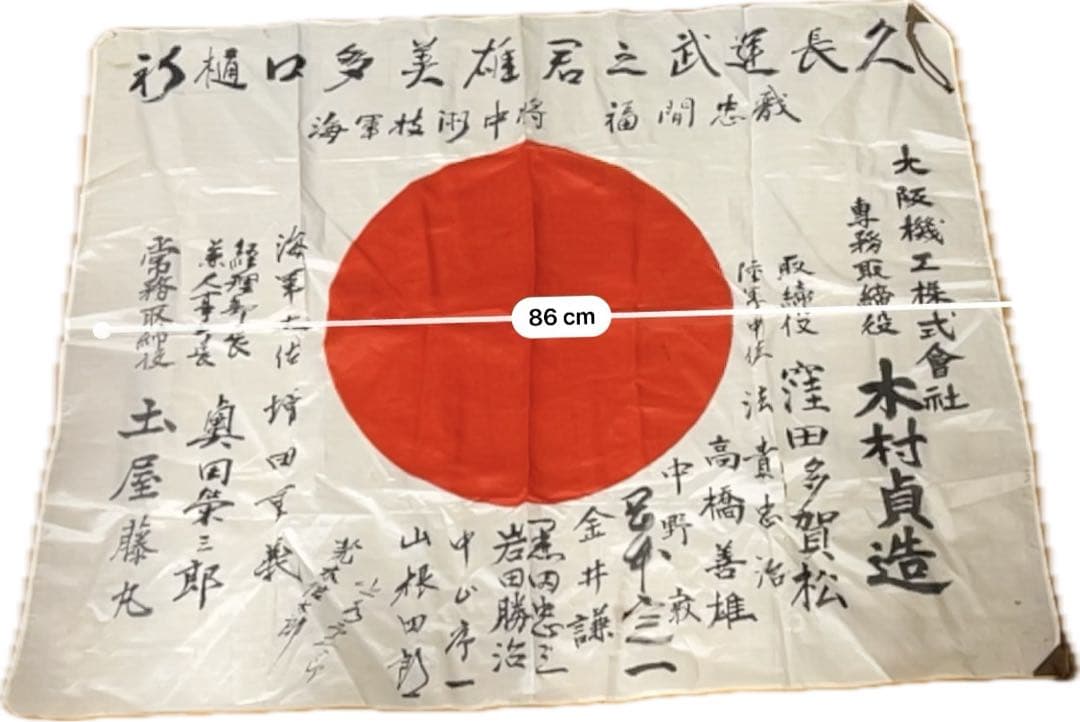 祈樋口多美雄君之武運長久
海軍技術中将 福間忠
大阪機工株式會社
専務取締役 木村貞造
取締役 窪田多賀松
陸軍中佐 法貴忠治
高橋善雄
中野
金井謙
岩田勝治
中山序一
山根田郎
海軍大佐 増田
経理部長
兼人事部長 奥田榮三郎
常務取締役 土屋藤丸
86 cm